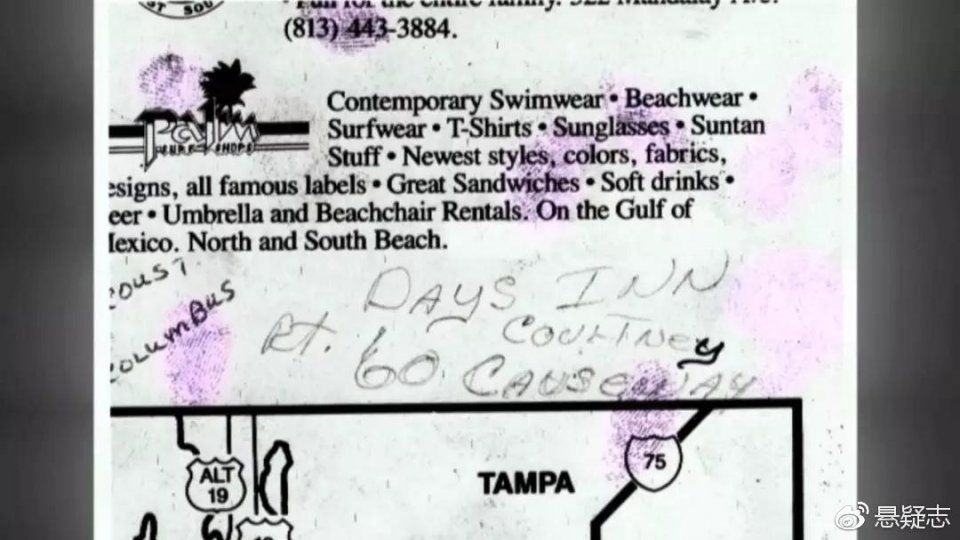 ST SOU
Fun for the entire family. 322 Mandalay Ave.
(813) 443-3884.
Palm
SURF SHOPS
Contemporary Swimwear • Beachwear •
Surfwear • T-Shirts • Sunglasses • Suntan
Stuff • Newest styles, colors, fabrics,
esigns, all famous labels • Great Sandwiches • Soft drinks •
eer • Umbrella and Beachchair Rentals. On the Gulf of
exico. North and South Beach.
COUST.
COLUMBUS
DAYS INN
Rt. 60 COURTNEY
CAUSEWAY
ALT
19
TAMPA
75
悬疑志